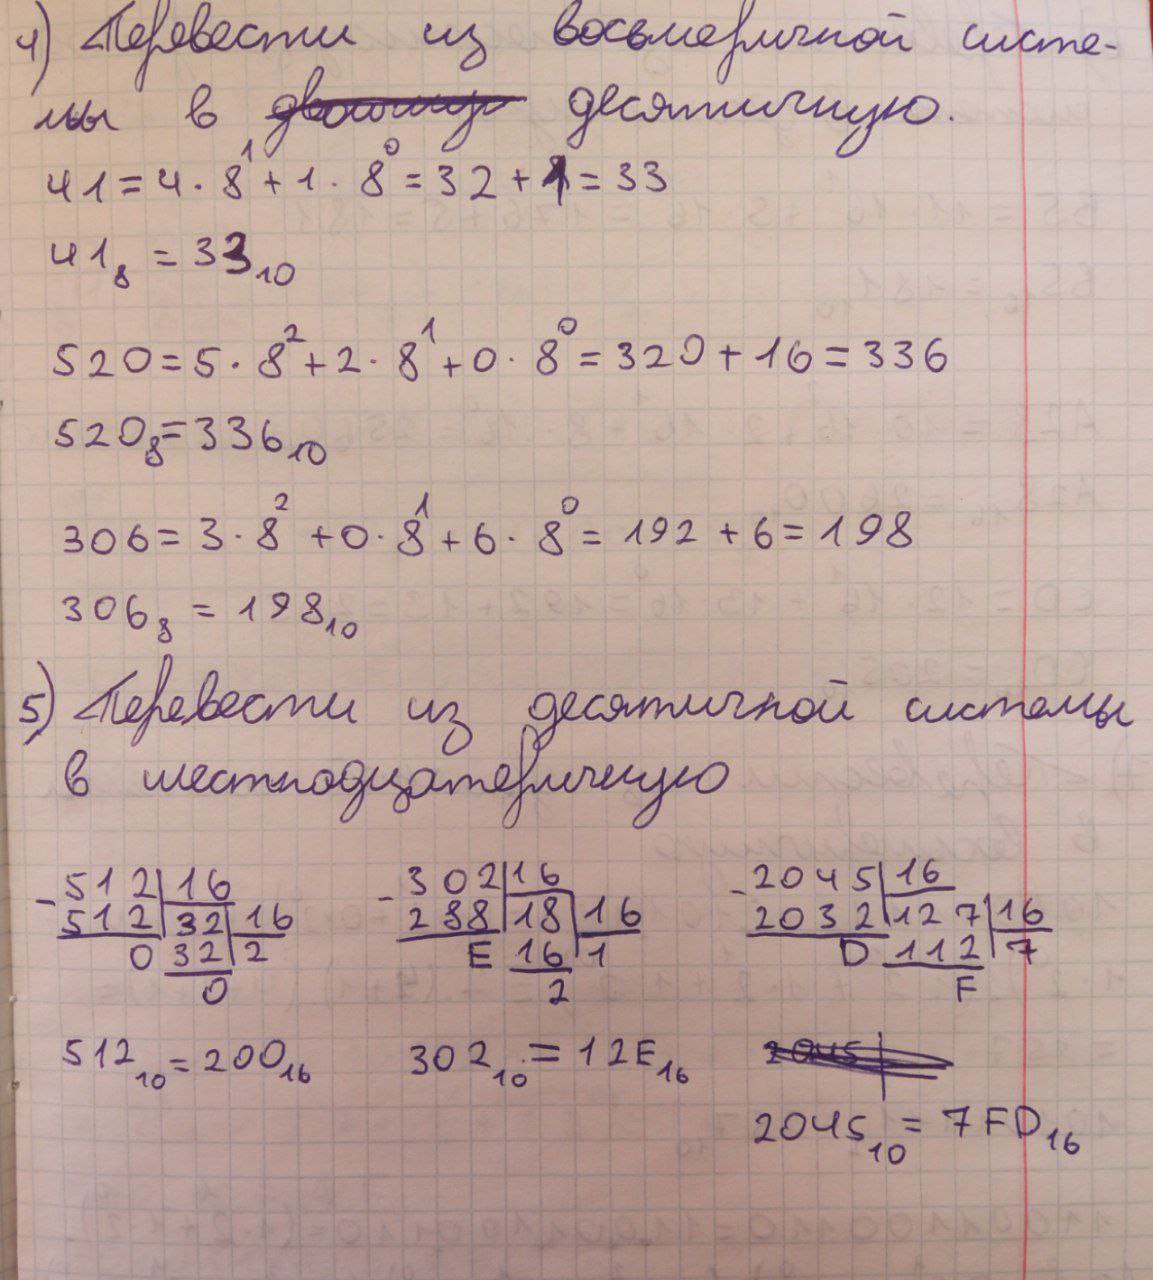 4) Перевести из восьмеричной систе-
мы в десятичную.
41 = 4 · 8¹ + 1 · 8⁰ = 32 + 1 = 33
41₈ = 33₁₀
520 = 5 · 8² + 2 · 8¹ + 0 · 8⁰ = 320 + 16 = 336
520₈ = 336₁₀
306 = 3 · 8² + 0 · 8¹ + 6 · 8⁰ = 192 + 6 = 198
306₈ = 198₁₀
5) Перевести из десятичной системы
в шестнадцатеричную
- 512 | 16 - 302 | 16 - 2045 | 16
512 | 32 | 16 288 | 18 | 16 2032 | 127 | 16
0 32 | 2 E 16 | 1 D 112 | 7
0 2 F
512₁₀ = 200₁₆ 302₁₀ = 12E₁₆
2045₁₀ = 7FD₁₆